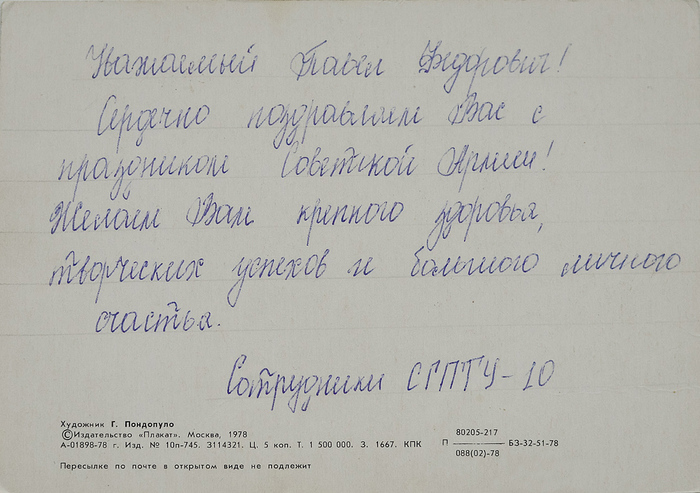 Уважаемый Павел Федорович!
Сердечно поздравляем Вас с
праздником Советской Армии!
Желаем Вам крепкого здоровья,
творческих успехов и большого личного
счастья.
Сотрудники СГПТУ-10
Художник Г. Пондопуло
©Издательство «Плакат». Москва, 1978
А-01898-78 г. Изд. № 10п-745. З114321. Ц. 5 коп. Т. 1 500 000. З. 1667. КПК
Пересылке по почте в открытом виде не подлежит
80205-217
П ———— БЗ-32-51-78
088(02)-78